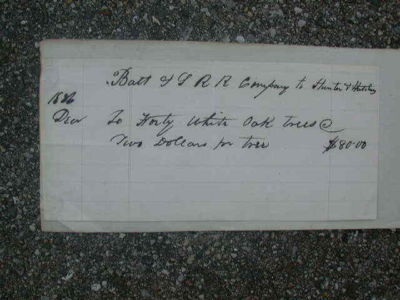 Balt & S R R Company to Hunter &
18
Decr To Forty White Oak trees @
Two Dollars per tree $80.00